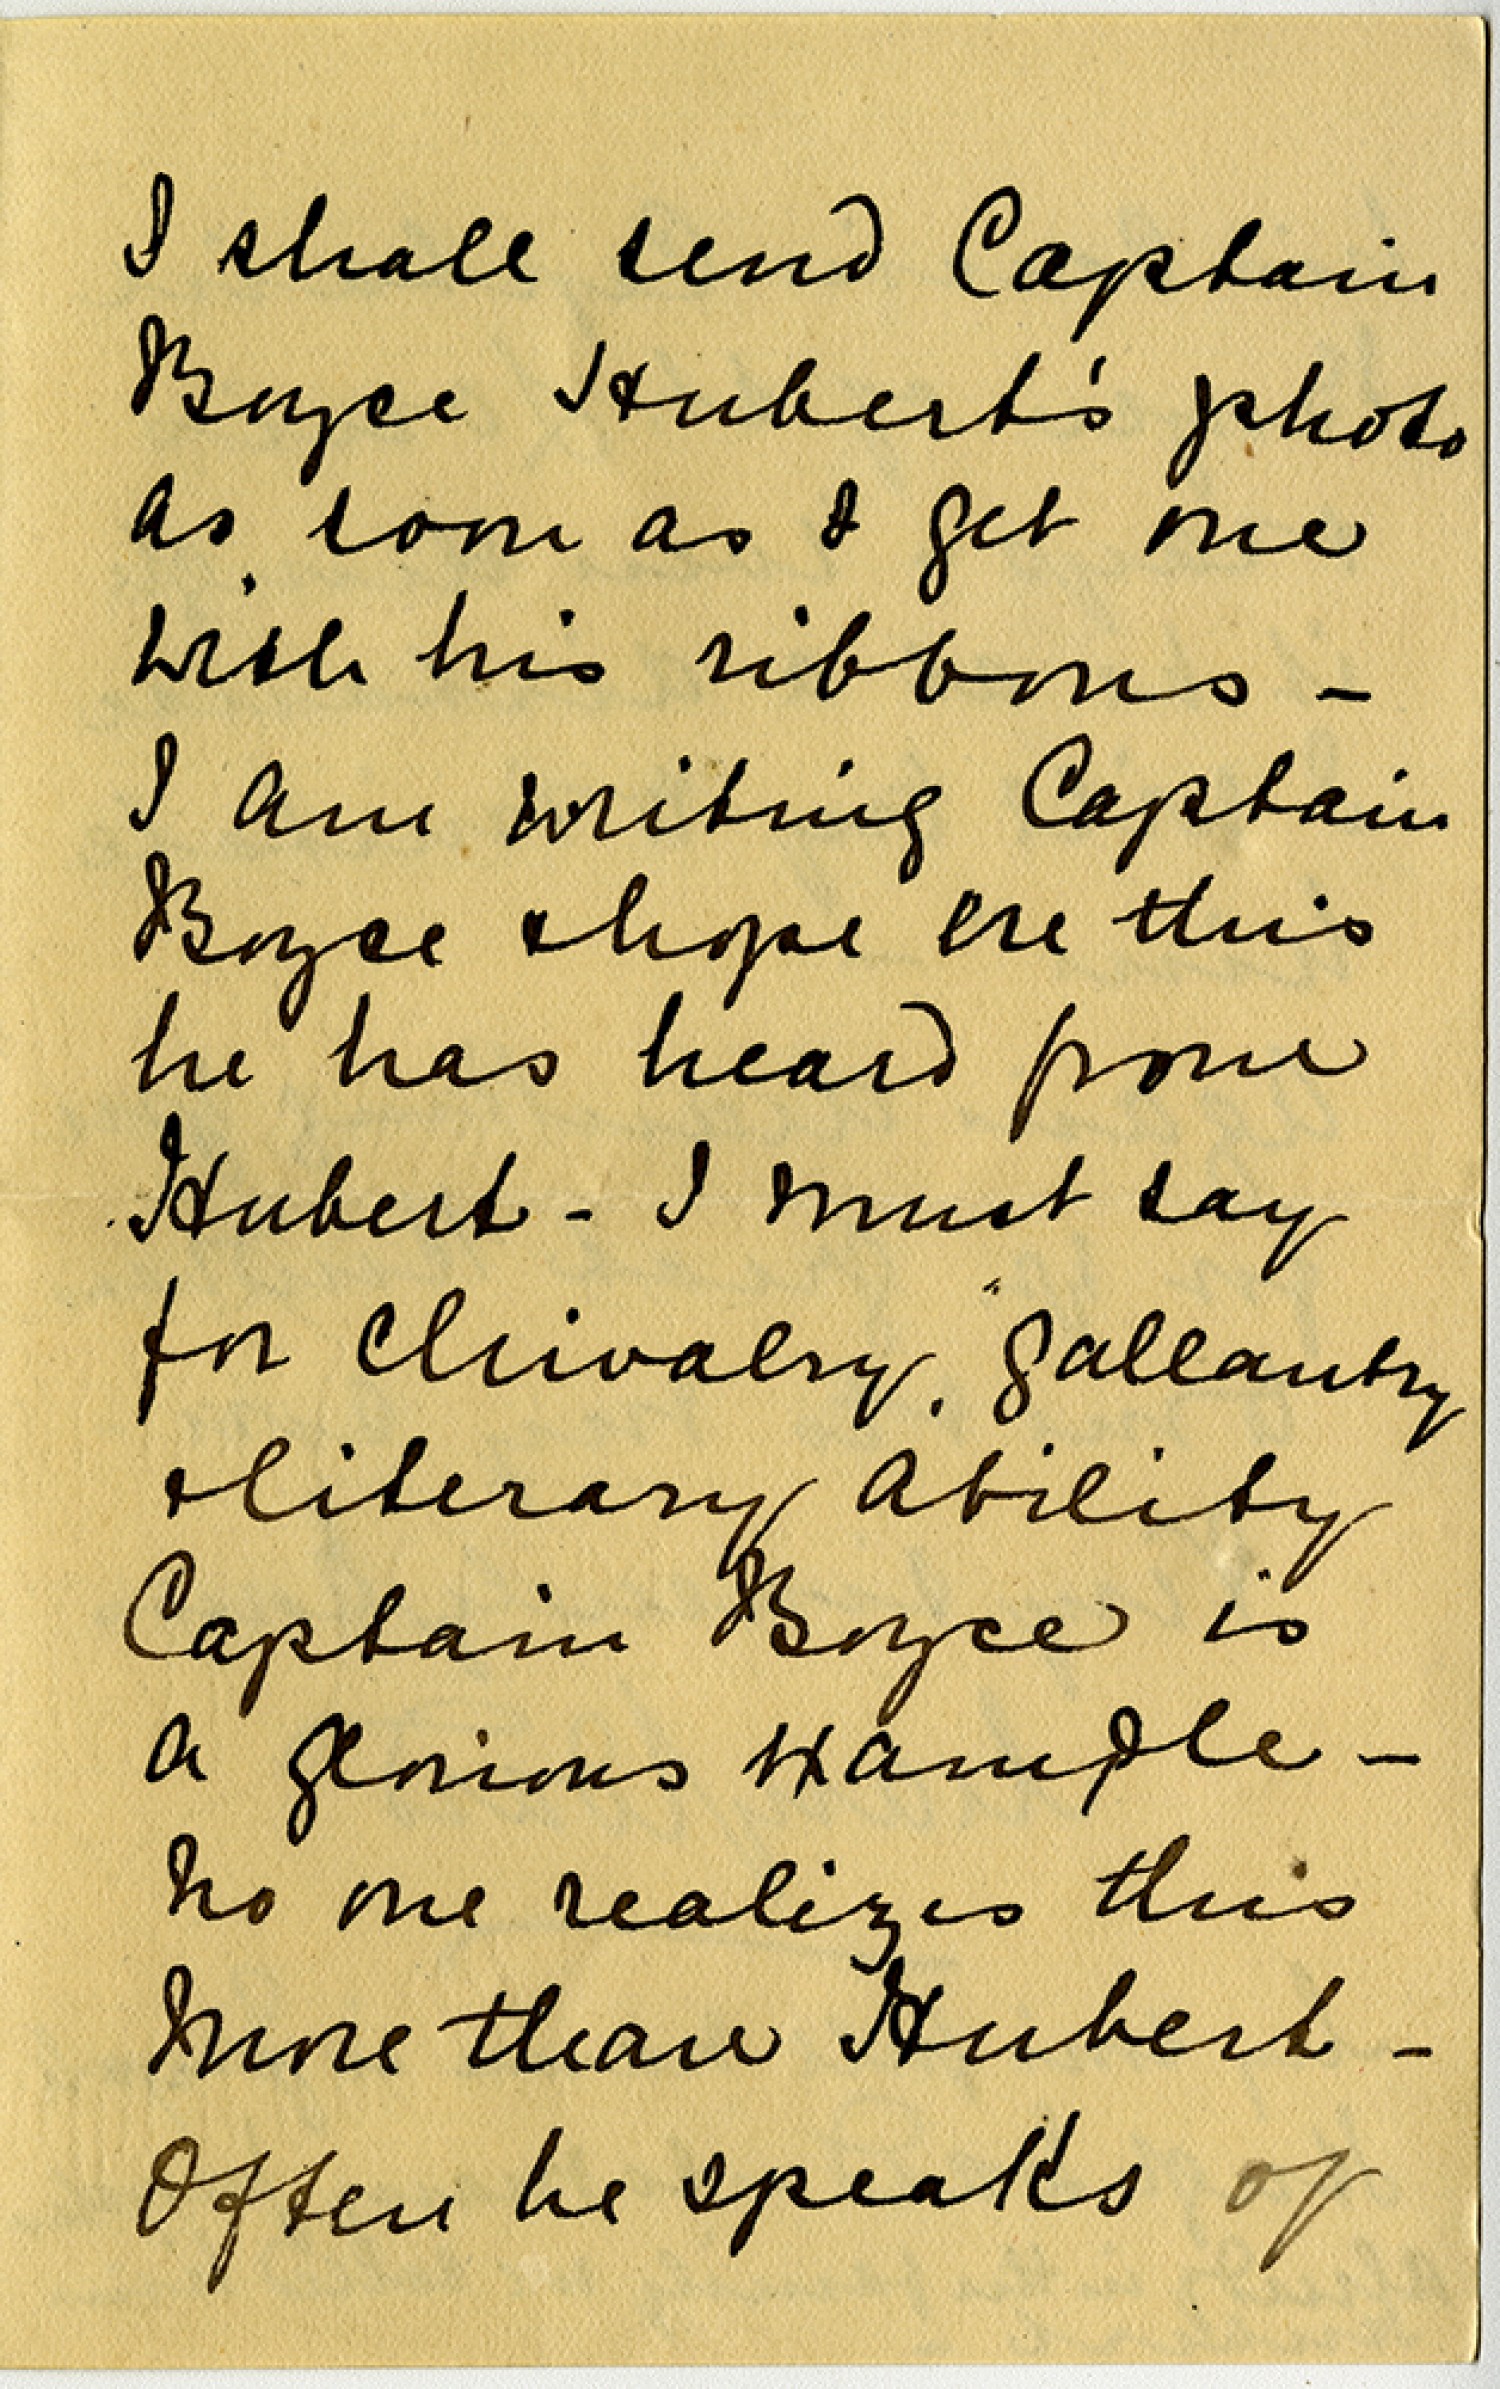 I shall send Captain
Boyce Hubert's photo
as soon as I get one
with his ribbons -
I am writing Captain
Boyce & hope ere this
he has heard from
Hubert - I must say
for chivalry, gallantry
& literary ability
Captain Boyce is
a glorious example -
No one realizes this
more than Hubert -
Often he speaks of